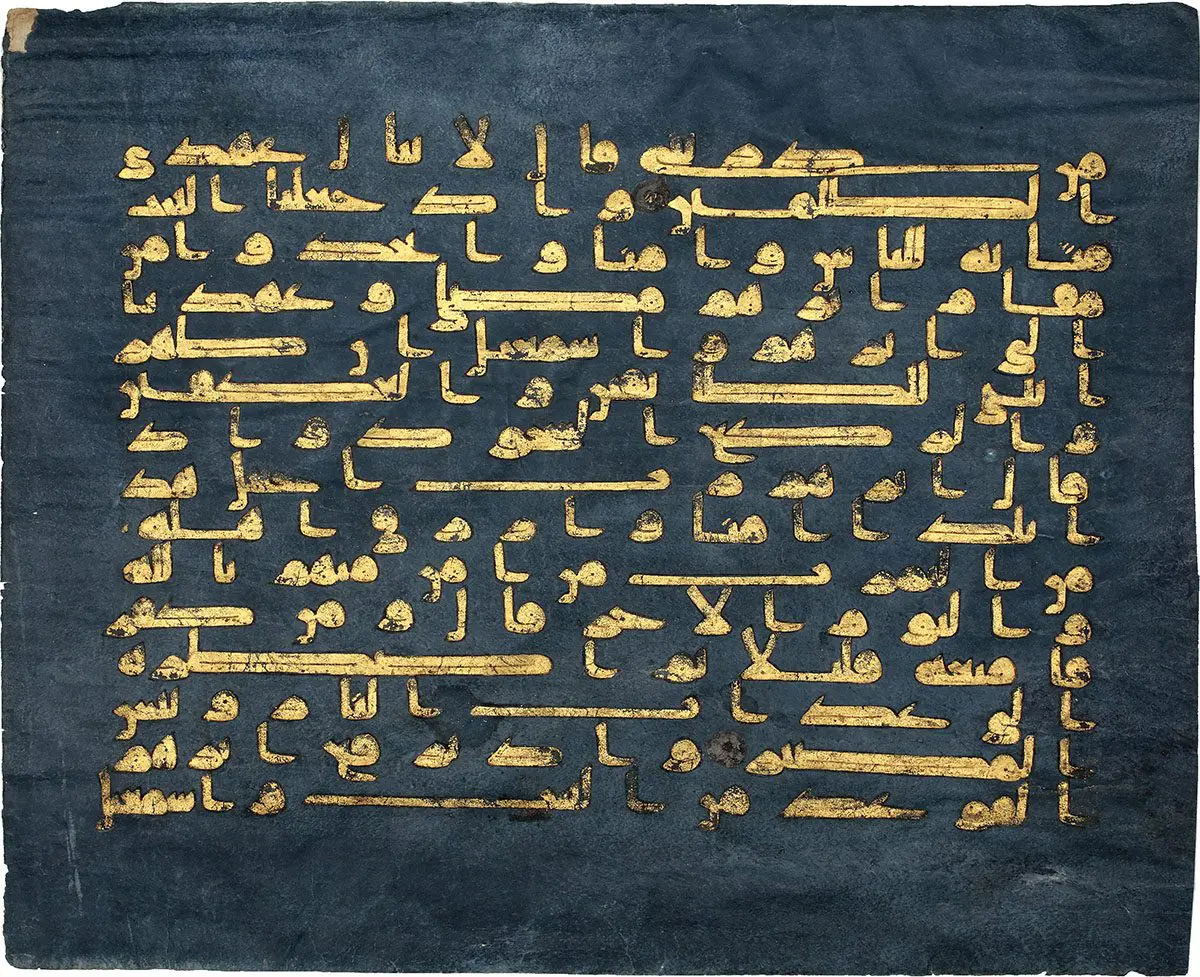 من ذريتي قال لا ينال عهدي
الظلمين وإذ جعلنا البيت
مثابة للناس وأمنا واتخذوا من
مقام إبرهيم مصلى وعهدنا
إلى إبرهيم وإسمعيل أن طهر
ا بيتي للطائفين والعكفين
والركع السجود وإذ
قال إبرهيم رب اجعل هذ
ا بلدا آمنا وارزق أهله
من الثمرت من آمن منهم بالله
واليوم الآخر قال ومن كفر
فأمتعه قليلا ثم أضطره
إلى عذاب النار وبئس
المصير وإذ يرفع إبرهيم
القوعد من البيت وإسمعيل